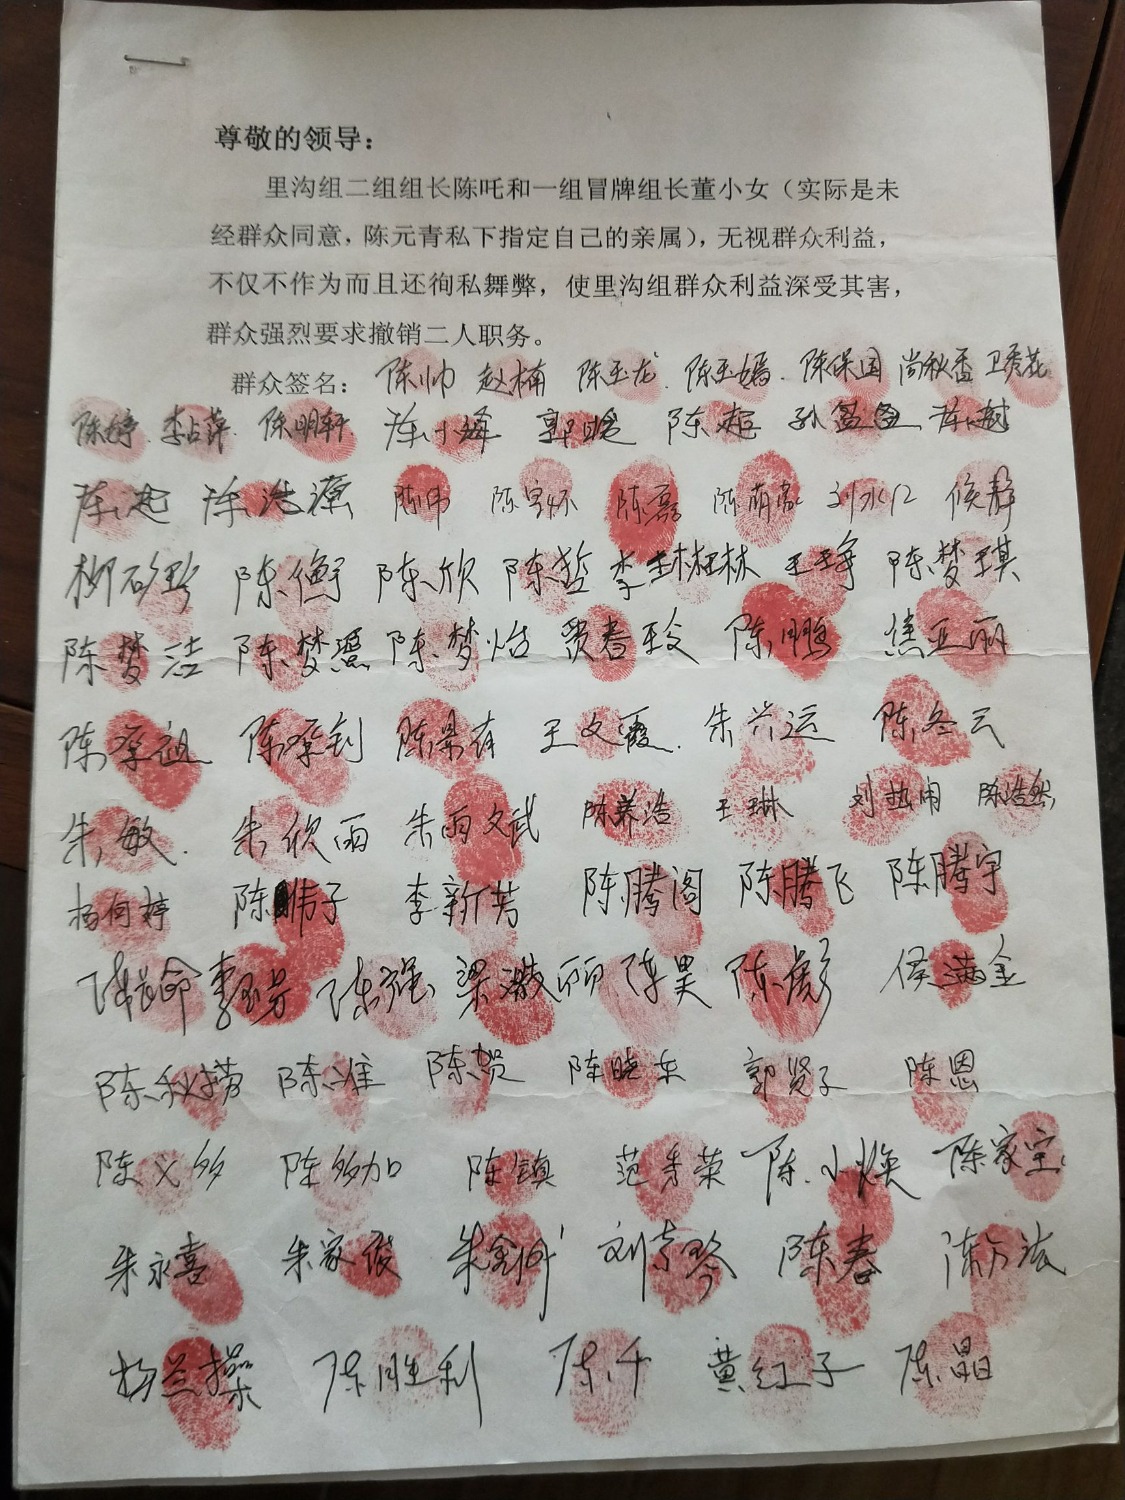 尊敬的领导：
里沟组二组组长陈吒和一组冒牌组长董小女（实际是未
经群众同意，陈元青私下指定自己的亲属），无视群众利益，
不仅不作为而且还徇私舞弊，使里沟组群众利益深受其害，
群众强烈要求撤销二人职务。
群众签名： 陈帅 赵楠 陈玉龙 陈玉嫣 陈保国 尚秋香 卫秀花
陈婷 李占萍 陈明轩 陈小峰 郭晓 陈超 孙盈盈 陈樾
陈起 陈浩源 陈伟 陈磊 陈萌 刘水仁 侯静
陈衡 陈欣 陈哲 王峥 陈梦琪
陈梦洁 陈梦 陈梦怡 贾春 陈鹏 焦亚丽
陈军钊 陈景 王文霞 朱兴运 陈冬云
朱敏 朱欣雨 朱雨 陈养浩 王琳 刘 陈浩然
杨何婷 陈 子 李新芳 陈腾阁 陈腾飞 陈腾宇
陈强 梁 丽 陈昊 陈彪 侯满金
陈秋 陈准 陈贺 陈晓东 郭贤子 陈恩
陈义多 陈多加 陈镇 范秀荣 陈小焕 陈家宝
朱永喜 朱家俊 朱金 刘 琴 陈春 陈
杨兰操 陈胜利 陈千 黄红子 陈晶